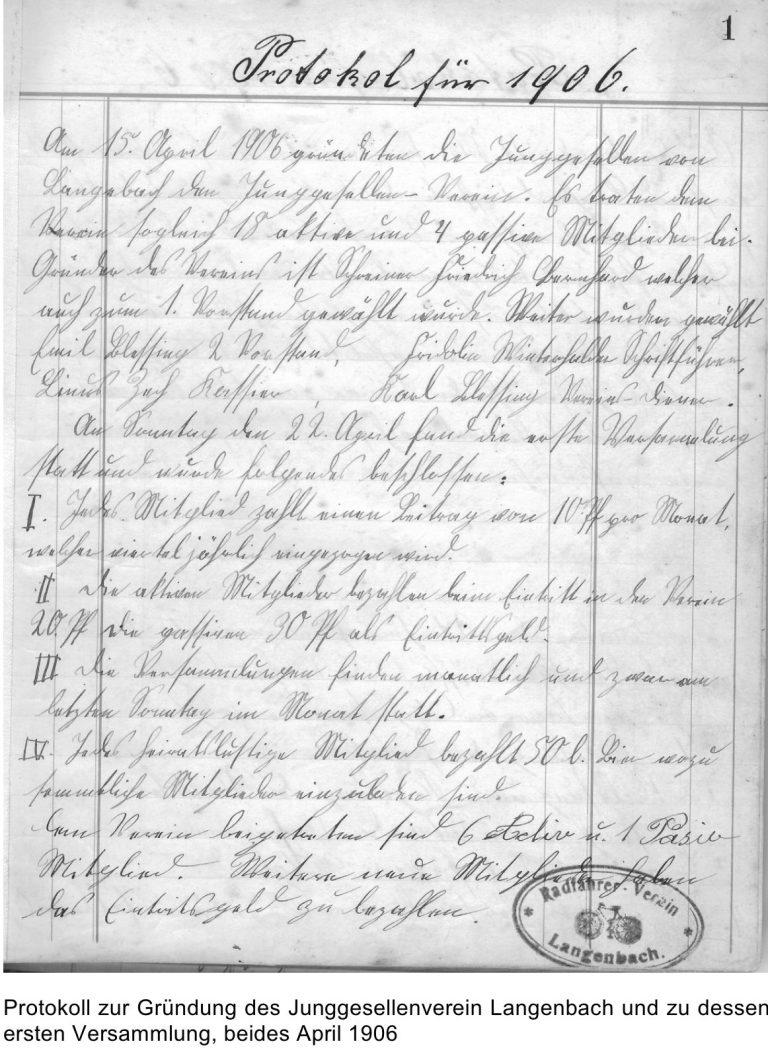 1
Protokol für 1906.
Am 15. April 1906 gründeten die Junggesellen von
Langebach den Junggesellen-Verein. Es traten dem
Verein sogleich 18 aktive und 4 passive Mitglieder bei.
Gründer des Vereins ist Schreiner Friedrich Bernhard welcher
auch zum 1. Vorstand gewählt wurde. Weiter wurden gewählt
Emil Blessing 2 Vorstand, Fridolin Winterhalder Schriftführer,
Linus Zech Kassier, Karl Blessing Vereins-Diener.
Am Sonntag den 22. April fand die erste Versammlung
statt und wurde folgendes beschlossen:
I. Jedes Mitglied zahlt einen Beitrag von 10 Pf pro Monat,
welcher vierteljährlich eingezogen wird.
II Die aktiven Mitglieder bezahlen beim Eintritt in den Verein
20. Pf die passiven 30 Pf als Eintrittsgeld.
III Die Versammlungen finden monatlich und zwar am
letzten Sonntag im Monat statt.
IV. Jedes heiratslustige Mitglied bezahlt 50 l. Bier wozu
sammtliche Mitglieder einzuladen sind.
Dem Verein beigetreten sind 6 Activ u. 1 Pasiv
Mitglied. Weitere neue Mitglieder haben
das Eintritsgeld zu bezahlen.
Radfahrer-Verein
Langenbach.
Protokoll zur Gründung des Junggesellenverein Langenbach und zu dessen
ersten Versammlung, beides April 1906